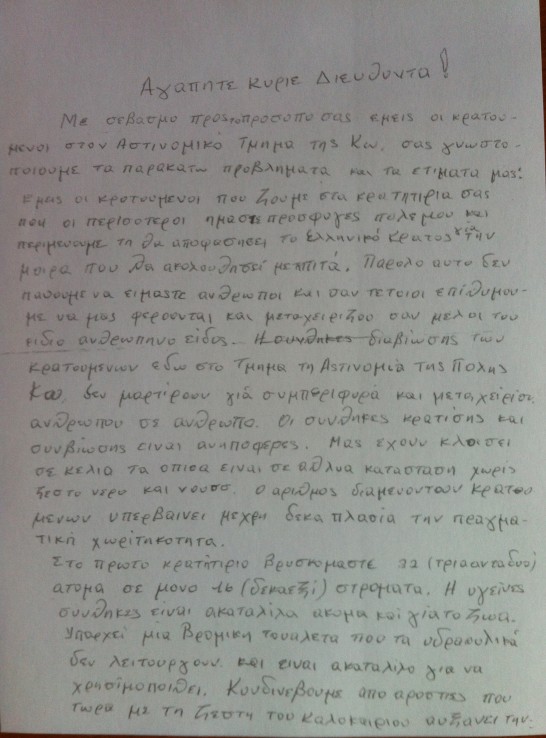 Αγαπητε κυριε Διευθυντα!
Με σεβασμο προς το προσωπο σας εμεις οι κρατου-
μενοι στον Αστινομικό Τμημα της Κω. σας γνωστο-
ποιουμε τα παρακατω προβλήματα και τα ετιματα μας:
Εμεις οι κρατουμενοι που ζουμε στα κρατητιρια σας
που οι περισοτεροι ημαστε προσφυγες πολεμου και
περιμενουμε τη θα αποφασησει το Ελληνικό κρατος για την
μοιρα που θα ακολουθησεί μεπιτά. Παρολο αυτο δεν
παυουμε να ειμαστε ανθρωποι και σαν τετοιοι επιθυμου-
με να μας φερονται και μεταχειριζου σαν μελοι του
ειδιο ανθρωπηνο είδος. Η συνθηκες διαβίωσης των
κρατουμενων εδω στο Τμημα τη Αστινομία της Πολης
Κω, δεν μαρτίρουν γιά συμπεριφορά και μεταχείριση
ανθρωπου σε ανθρωπο. Οι συνθηκες κρατισης και
συνβιωσης ειναι ανηποφερες. Μας εχουν κλεισει
σε κελια τα οποια ειναι σε αθλυα κατασταση χωρις
ζεστο νερο και ντουσ. ο αριθμος διαμενοντων κρατου
μενων υπερβαινει μεχρη δεκα πλασία την πραγμα-
τική χωριτηκοτητα.
Στο πρωτο κρατήτιριο Βρισκομαστε 32 (τριαανταδυο)
ατομα σε μονο 16 (δεκαεξι) στροματα. Η υγείνες
συνθηκες είναι ακαταλιλα ακομα και για το ζωα.
Υπαρχεί μια Βρομικη τουαλετα που τα υδραυλικά
δεν λειτουργουν και ειναι ακαταλιλο για να
χρησιμοποιθει. Κουδινεβουμε απο αροστιες που
τωρα με τη ζεστη του καλοκαιριου αυξανει την